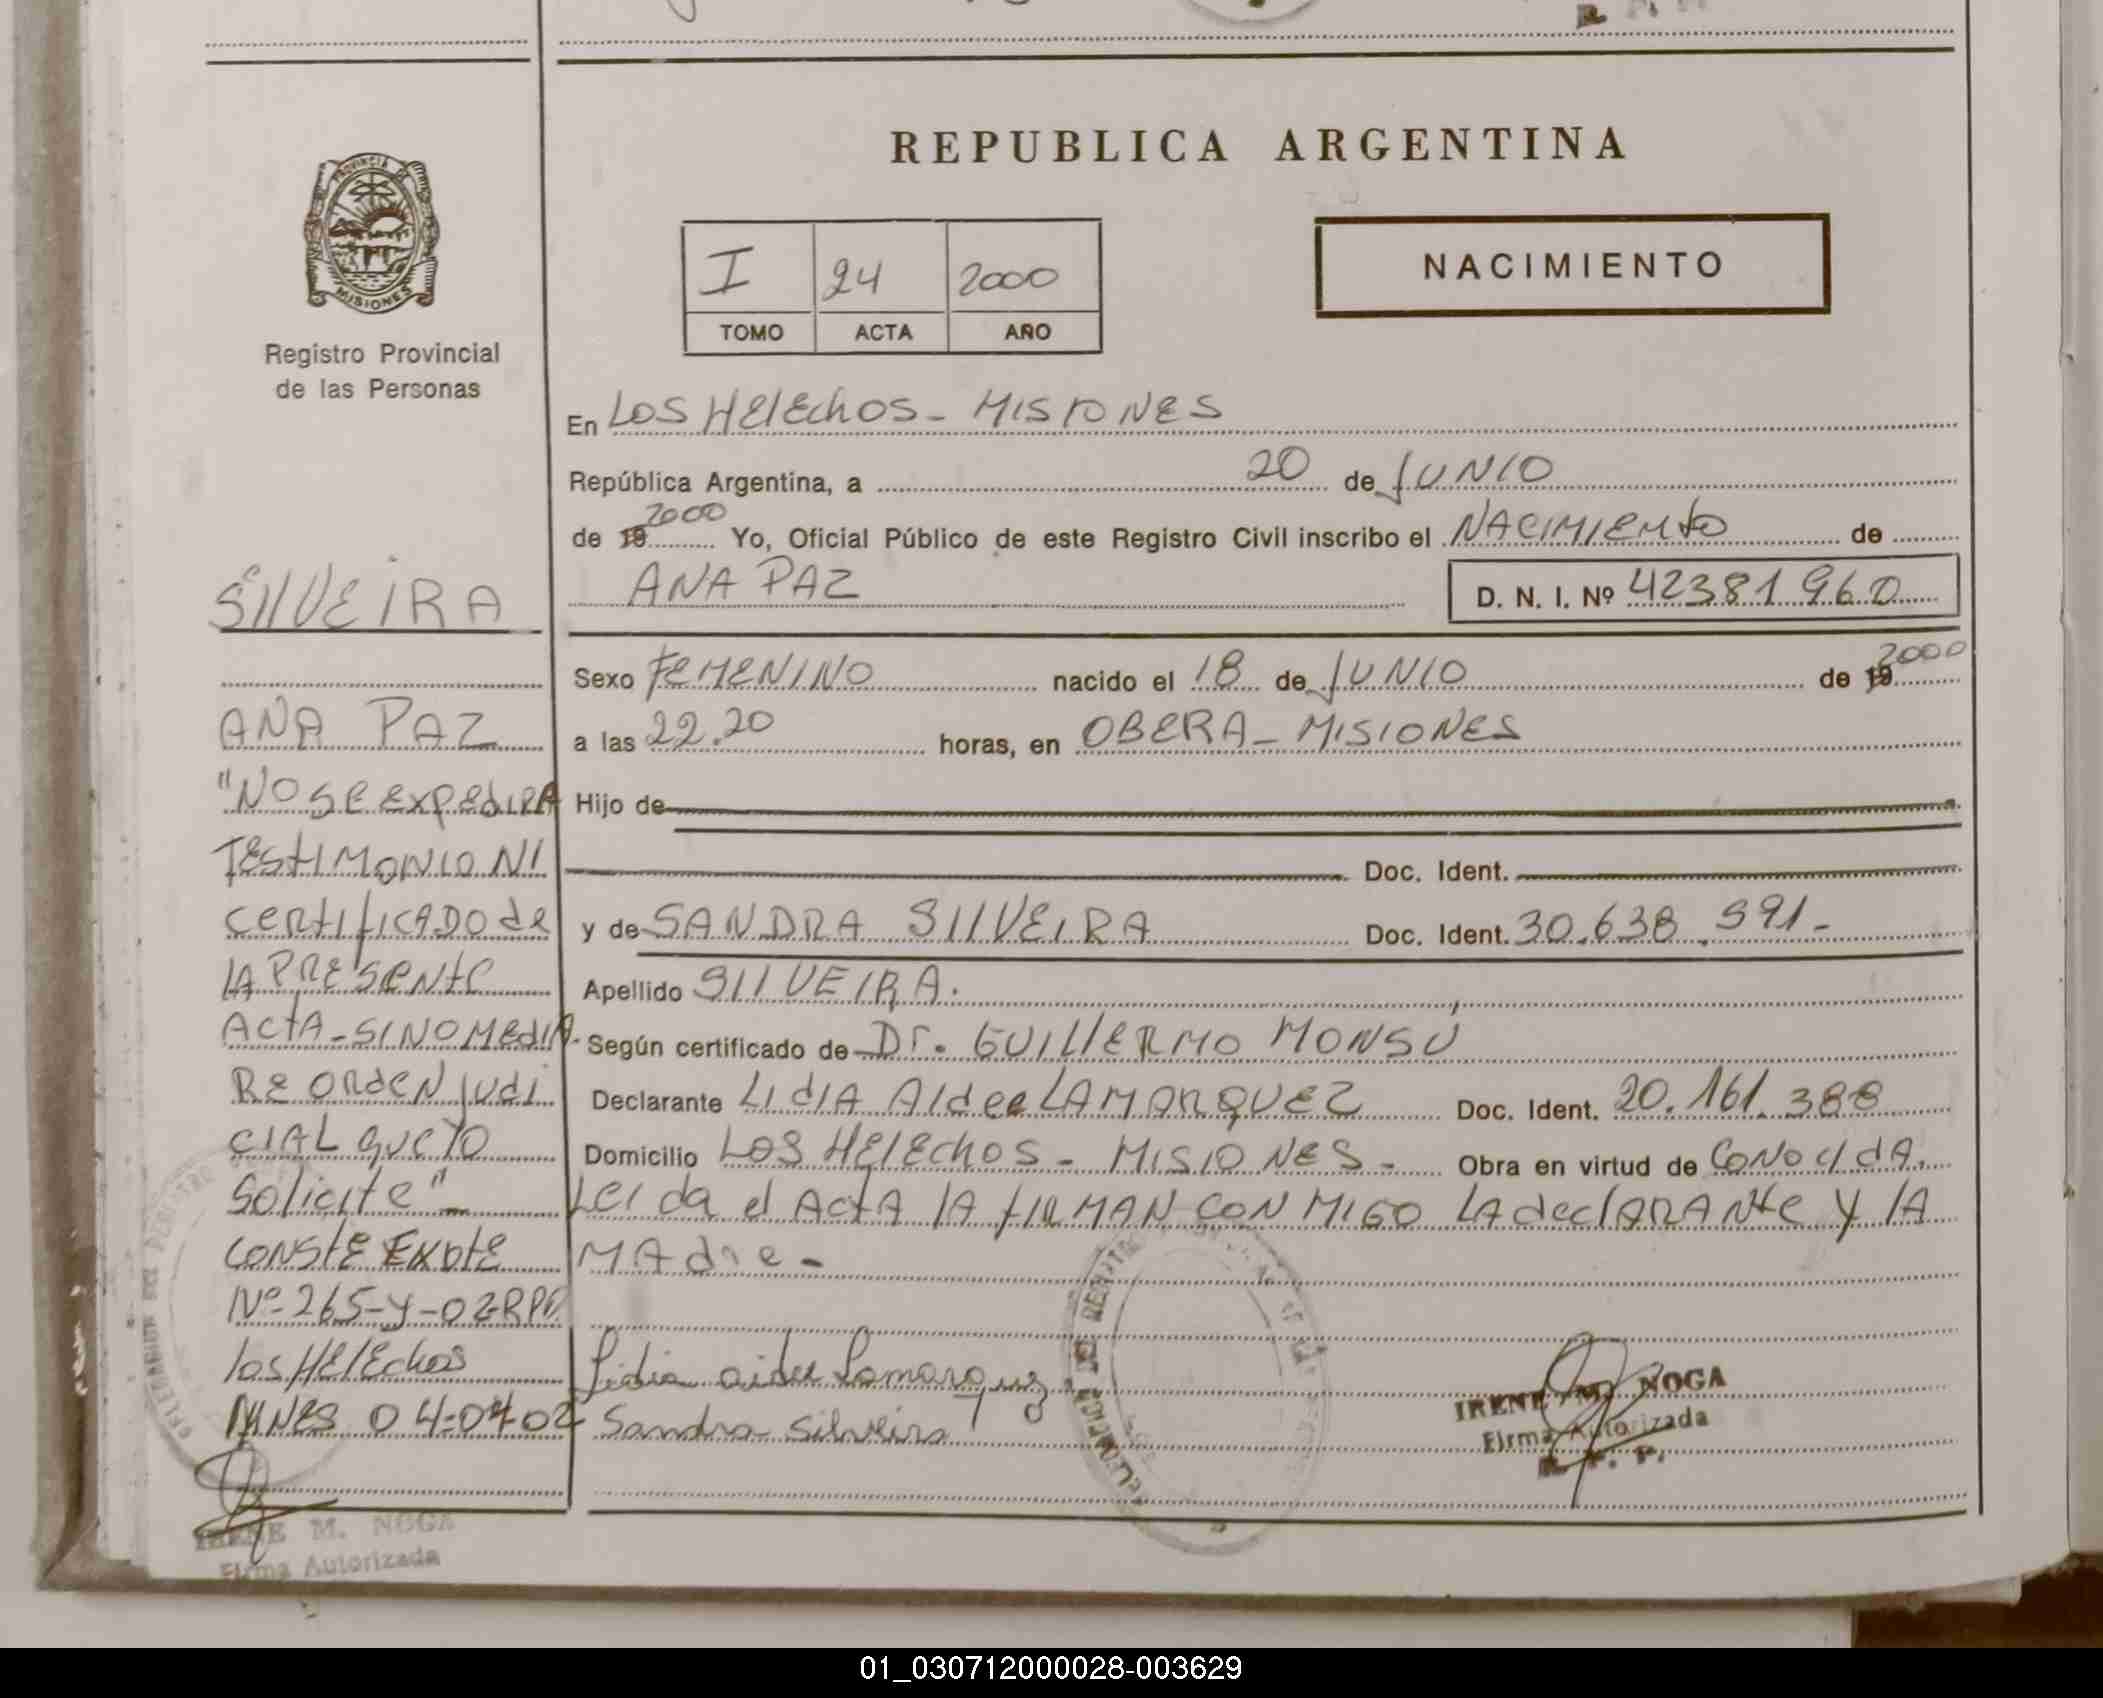 REPUBLICA ARGENTINA
PROVINCIA DE
MISIONES
Registro Provincial
de las Personas
I 24 2000
TOMO ACTA AÑO
NACIMIENTO
En LOS HElEchOS - MISIONES
República Argentina, a 20 de JUNIO
de 19 2000 Yo, Oficial Público de este Registro Civil inscribo el NACIMIENtO de
ANA PAZ D. N. I. Nº 42381960
Sexo FEMENINO nacido el 18 de JUNIO de 19 2000
a las 22.20 horas, en OBERA - MISIONES
Hijo de
Doc. Ident.
y de SANDRA SIlVEIRA Doc. Ident. 30.638.591-
Apellido SIlVEIRA.
Según certificado de Dr. GUIllERMO MONSU
Declarante LIdIA AIdee LAMARQUEZ Doc. Ident. 20.161.388
Domicilio LOS HElEchOS - MISIONES - Obra en virtud de CONOCIdA.
LeIda el ActA lA fIRMAN CONMIGO LA declARANte y lA
MAdre -
Lidia aidee Lamarquez
Sandra Silveira
IRENE M. NOGA
Firma Autorizada
R. P. P.
SIlVEIRA
ANA PAZ
"NO SE ExpedIRA
TEStIMONIO NI
CeRtIfICADO de
lA PRESENte
ActA - SINO MEdIA
RE ORdEN JUdI
CIAL QUE lO
Solicite" -
CONStE EXpte
Nº 265-y-02-RPP
los HElEchos
MNES 04-07-02
IRENE M. NOGA
Firma Autorizada
01_030712000028-003629